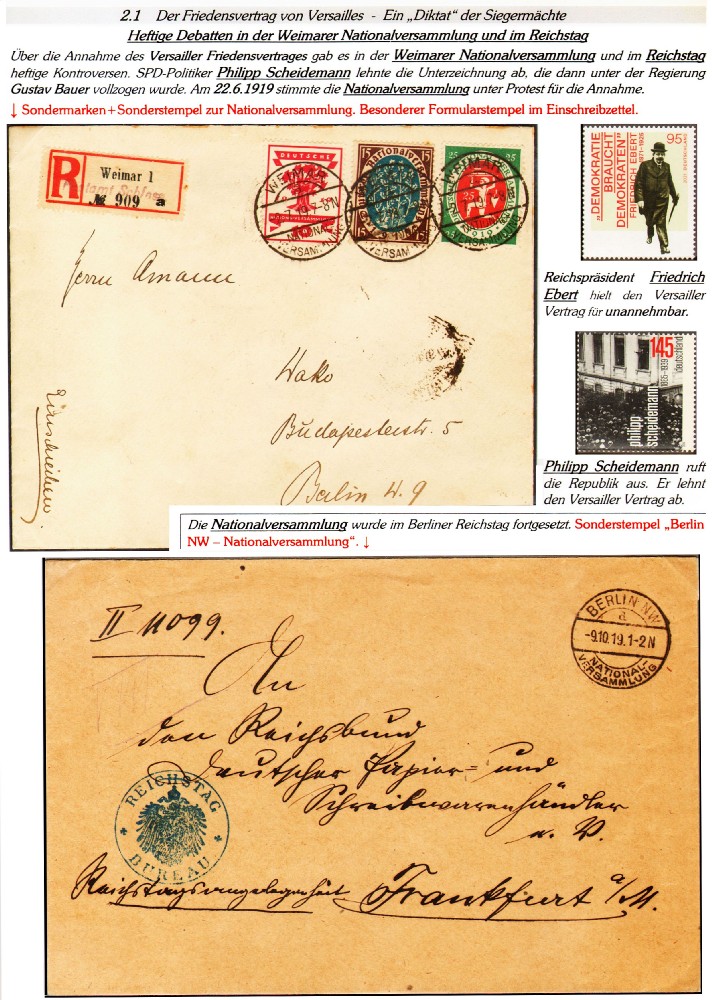 2.1 Der Friedensvertrag von Versailles - Ein „Diktat“ der Siegermächte
Heftige Debatten in der Weimarer Nationalversammlung und im Reichstag
Über die Annahme des Versailler Friedensvertrages gab es in der Weimarer Nationalversammlung und im Reichstag
heftige Kontroversen. SPD-Politiker Philipp Scheidemann lehnte die Unterzeichnung ab, die dann unter der Regierung
Gustav Bauer vollzogen wurde. Am 22.6.1919 stimmte die Nationalversammlung unter Protest für die Annahme.
↓ Sondermarken+Sonderstempel zur Nationalversammlung. Besonderer Formularstempel im Einschreibzettel.
R
Weimar 1
№ 909 a
DEUTSCHE
NATIONALVERSAMMLUNG
WEIMAR
NATIONAL-
VERSAMMLUNG
15 15
25 25
Herrn Amann
Wako
Budapesterstr. 5
Berlin W. 9
Einschreiben
95
„DEMOKRATIE
BRAUCHT
DEMOKRATEN“
FRIEDRICH EBERT
1871–1925
Reichspräsident Friedrich
Ebert hielt den Versailler
Vertrag für unannehmbar.
145
deutschland
1865–1939
philipp
scheidemann
Philipp Scheidemann ruft
die Republik aus. Er lehnt
den Versailler Vertrag ab.
Die Nationalversammlung wurde im Berliner Reichstag fortgesetzt. Sonderstempel „Berlin
NW – Nationalversammlung“. ↓
II 11099.
BERLIN NW
a
-9.10.19.1-2N
NATIONAL-
VERSAMMLUNG
An
den Reichsbund
deutscher Papier- und
Schreibwarenhändler
e. V.
REICHSTAG
BUREAU
Reichstagsangelegenheit
Frankfurt a/M.